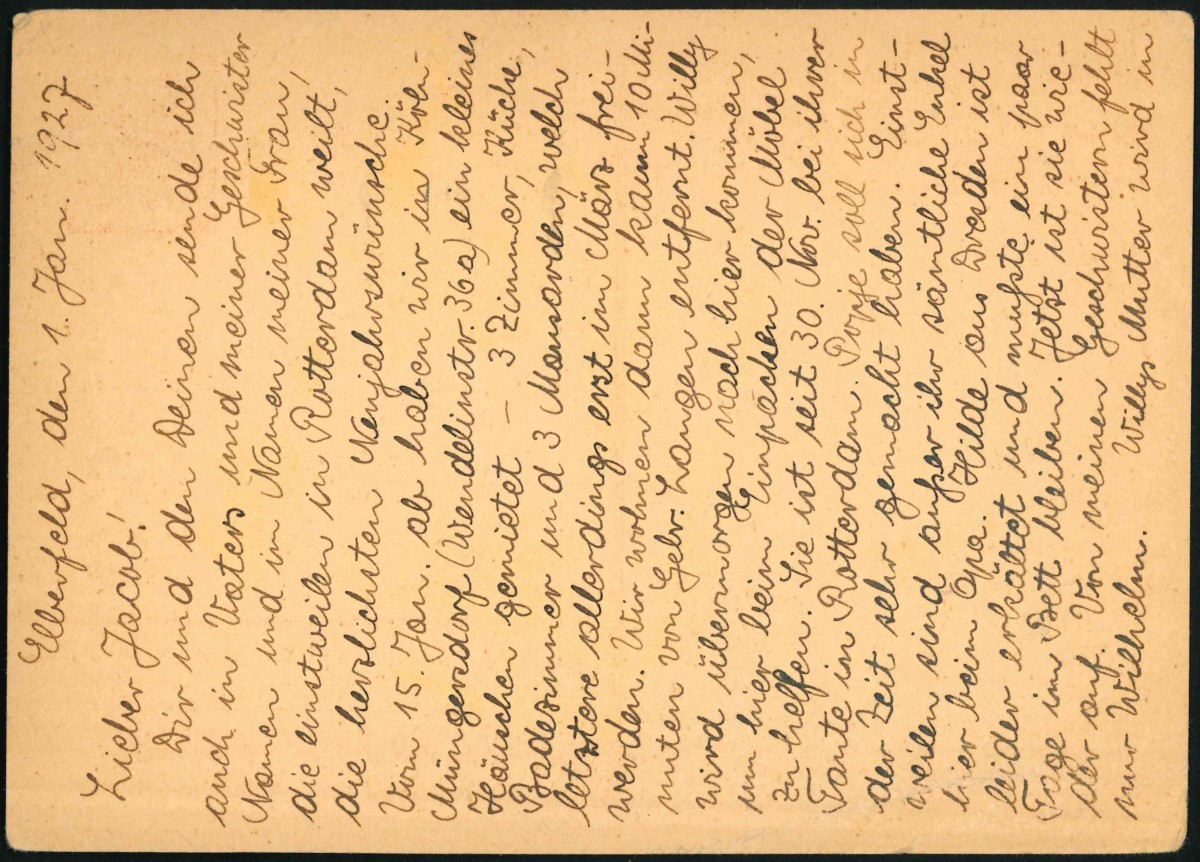 Elberfeld, den 1. Jan. 1927
Lieber Jacob!
Dir und den Deinen sende ich
auch in Vaters und meiner Geschwister
Namen und im Namen meiner Frau,
die einstweilen in Rotterdam weilt,
die herzlichsten Neujahrswünsche.
Vom 15. Jan. ab haben wir in Köln-
Müngersdorf (Wendelinstr. 36a) ein kleines
Häuschen gemietet – 3 Zimmer, Küche,
Badezimmer und 3 Mansarden, welch
letztere allerdings erst im März frei-
werden. Wir wohnen dann kaum 10 Mi-
nuten von Gebr. Langen entfernt. Willy
wird übermorgen nach hier kommen,
um hier beim Einpacken der Möbel
zu helfen. Sie ist seit 30. Nov. bei ihrer
Tante in Rotterdam. soll sich in
der Zeit sehr gemacht haben. Einst-
weilen sind außer ihr sämtliche Enkel
hier beim Opa. Hilde aus Dresden ist
leider erkältet und mußte ein paar
Tage im Bett bleiben. Jetzt ist sie wie-
der auf. Von meinen Geschwistern fehlt
nur Wilhelm. Willys Mutter wird in